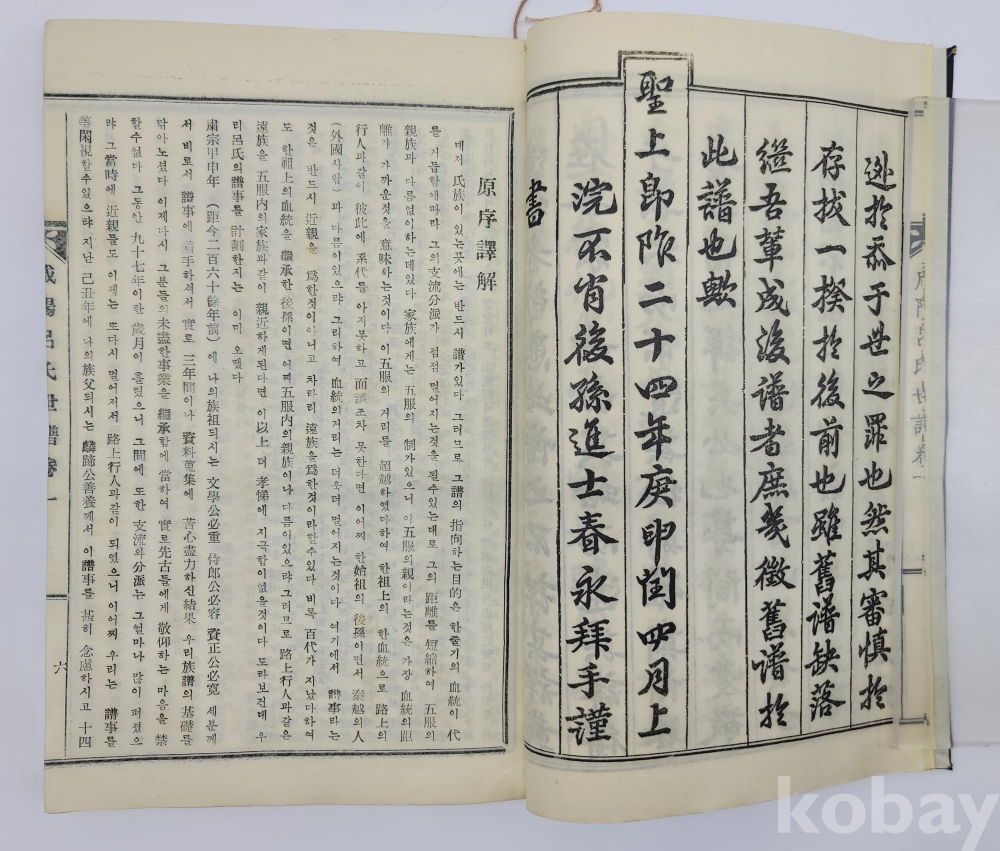 逊於忝于世之罪也然其審慎於
存拔一揆於後前也雖舊譜缺落
繼吾輩成後譜者庶幾徵舊譜於
此譜也歟
聖上卽阼二十四年庚申閏四月上
浣不肖後孫進士春永拜手謹
書
原序譯解
대저 氏族이 있는곳에는 반드시 譜가있다 그러므로 그譜의 指向하는目的은 한줄기의 血統이 代
를 거듭함에따라 그의支流分派가 점점 멀어지는것을 될수있는대로 그의 距離를 短縮하여 五服의
親族과 다름없이하는데있다 家族에게는 五服의 制가있으니 이五服의親이라는것은 가장 血統의距
離가 가까운것을 意味하는것이다 이五服의 거리를 超越하였다하여 한祖上의 한血統으로 路上의
行人과같이 彼此에 系代를 아지못하고 面識조차 못한다면 이어찌 한始祖의 後孫이면서 秦越의人
(外國사람)과 다름이있으랴 그리하여 血統의거리는 더욱더 멀어지는것이다 여기에서 譜事라는
것은 반드시 近親을 爲한것이아니고 차라리 遠族을爲한것이라할수있다 비록 百代가 지났다하여
도 한祖上의血統을 繼承한後孫이면 어찌五服內의親族이나 다름이있으랴 그러므로 路上行人과같은
遠族을 五服內의家族과같이 親近하게된다면 이以上 더 孝悌에 지극함이없을것이다 도라보건대 우
리呂氏의譜事를 計劃한지는 이미 오랬다
肅宗甲申年 (距今二百六十餘年前)에 나의族祖되시는 文學公必重 侍郎公必容 資正公必寬 세분께
서 비로서 譜事에 着手하셔서 實로 三年間이나 資料蒐集에 苦心盡力하신結果 우리族譜의基礎를
닦아노셨다 이제다시 그분들의未盡한事業을 繼承함에 當하여 實로先古들에게 敬仰하는 마음을 禁
할수없다 그동안 九十七年이란 歲月이 흘렀으니 그間에 또한 支流와分派는 그얼마나 많이 퍼졌으
랴 그當時에 近親들도 이제는 또다시 멀어저서 路上行人과같이 되였으니 이어찌 우리는 譜事를
善閑視할수있으랴 지난 己丑年에 나의族父되시는 麟蹄公善養께서 이譜事를 甚히 念慮하시고 十四
咸陽呂氏世譜卷一
六
kobay